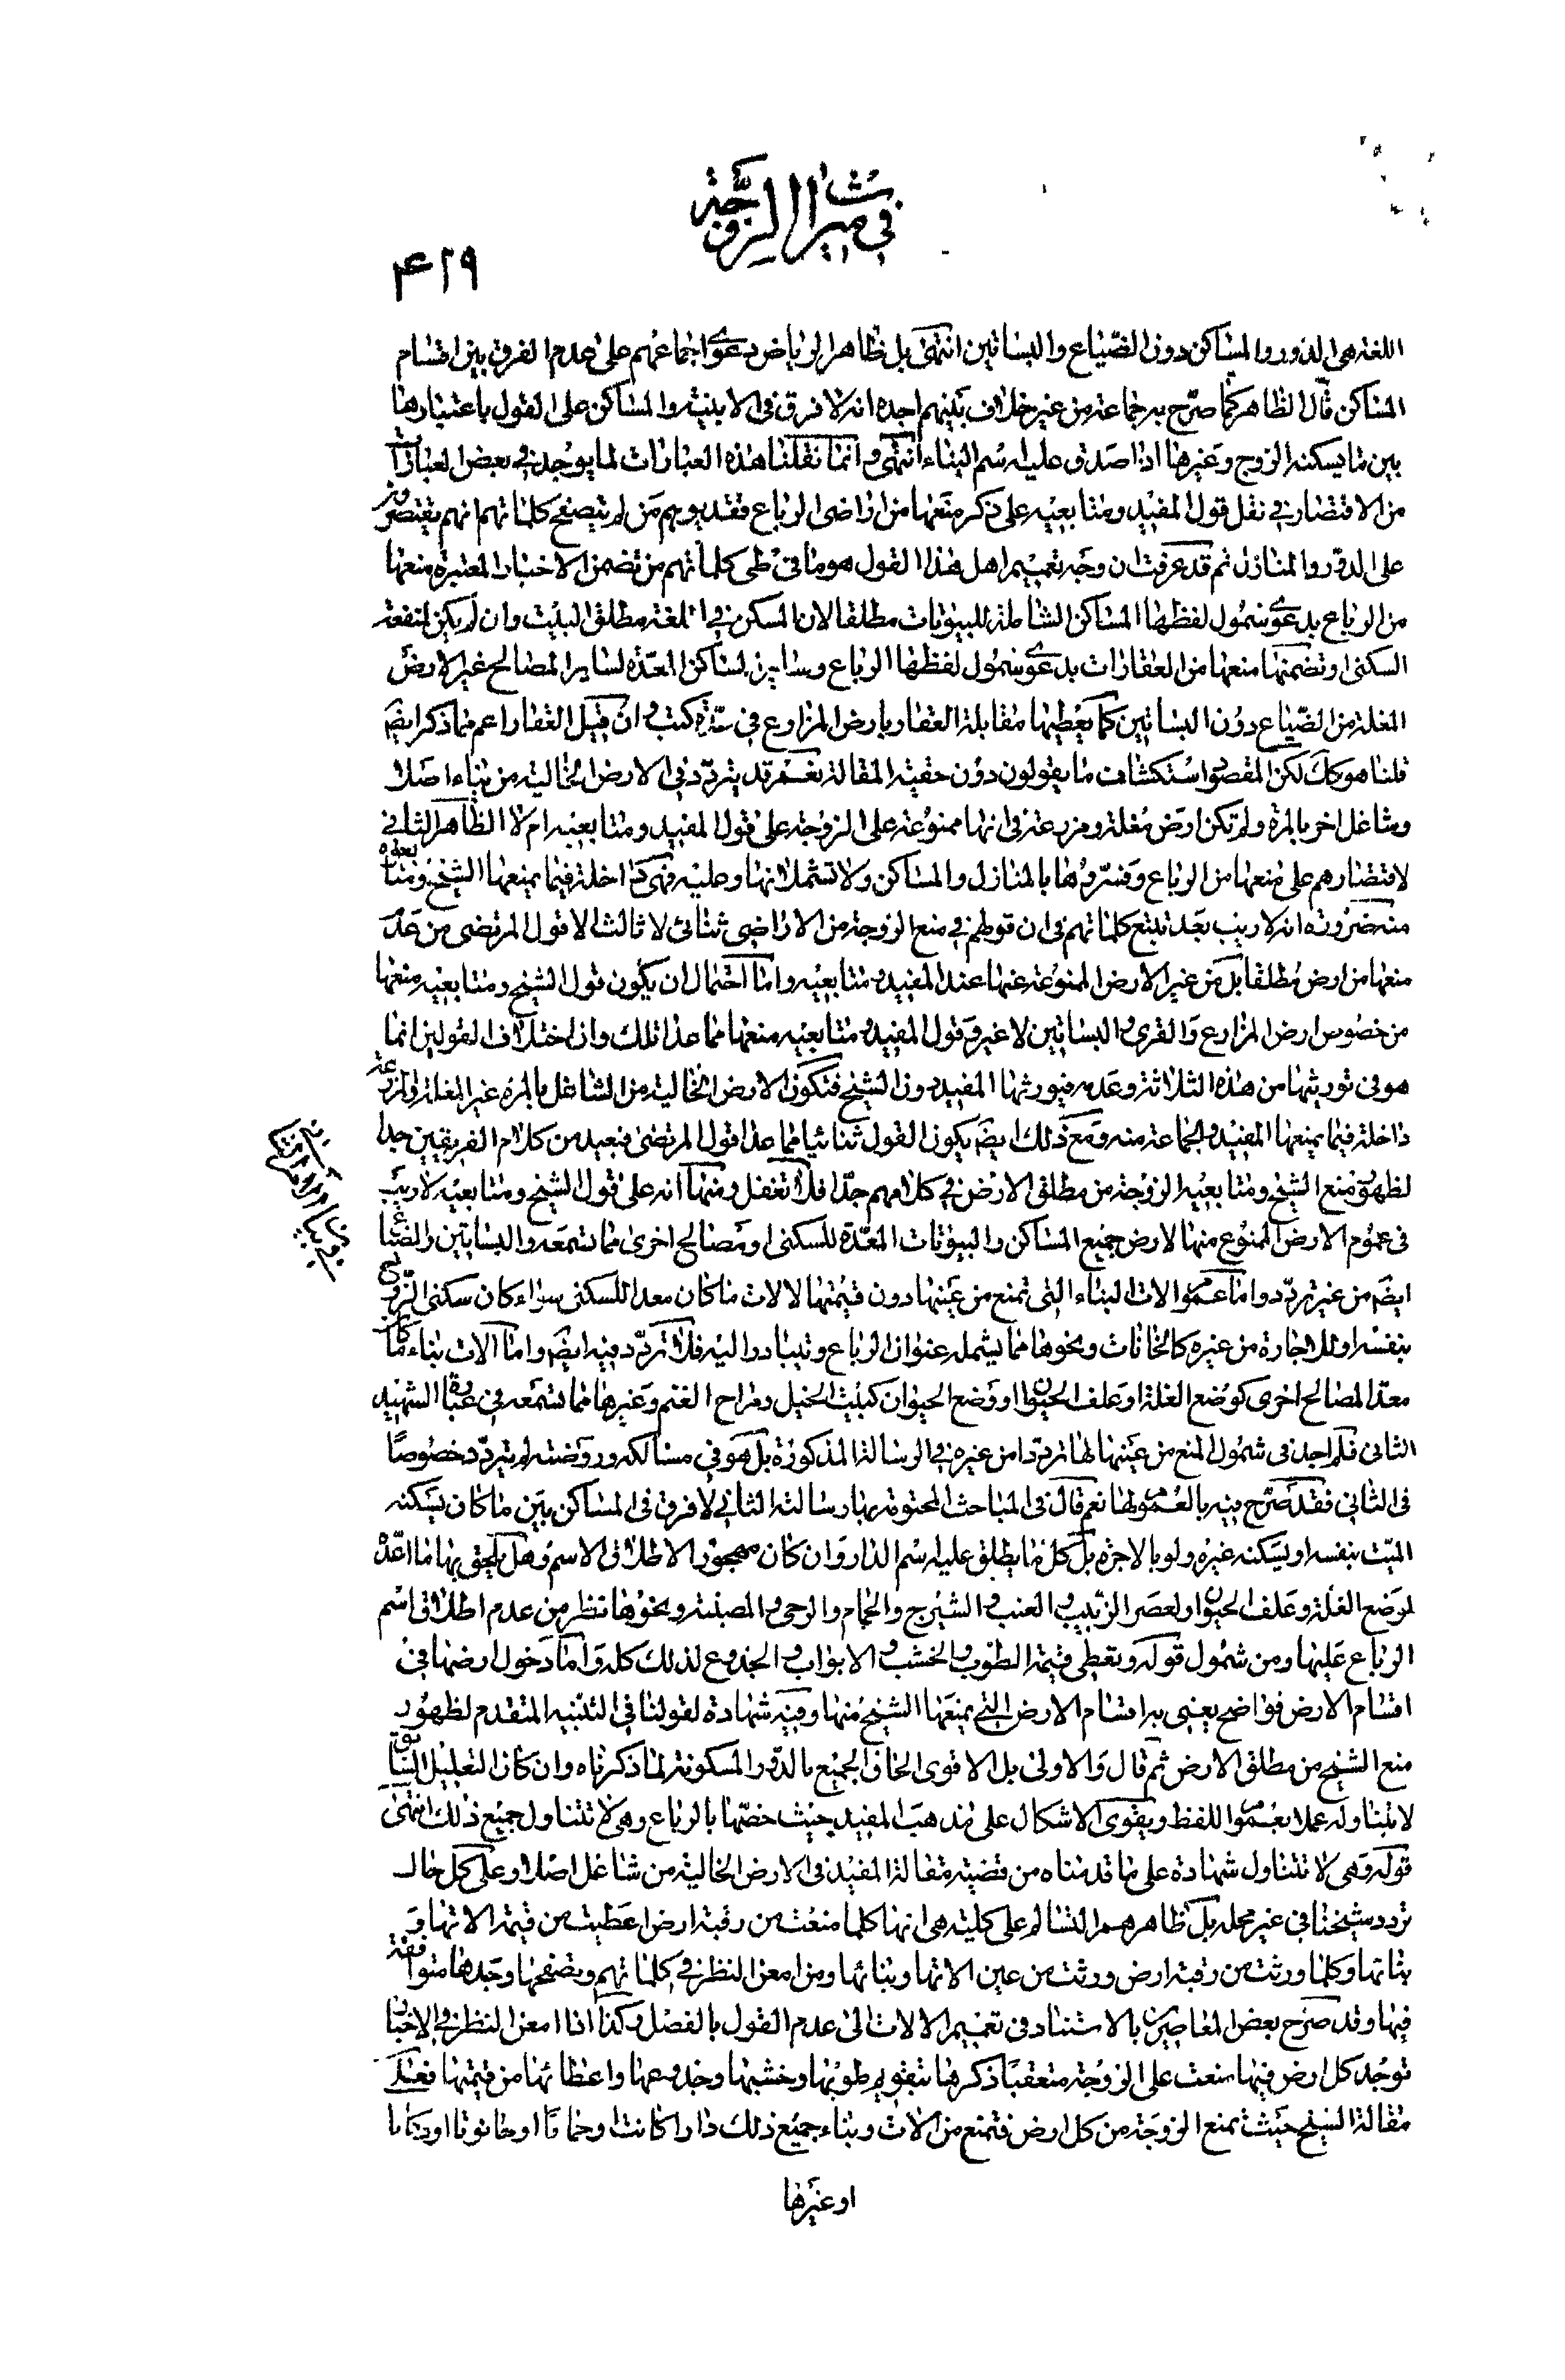 في ميراث الزوجة
٤٢٩
اللغة هي الدور والمساكن دون الضياع والبساتين انتهى بل ظاهر الرياض دعوى اجماعهم على عدم الفرق بين اقسام
المساكن قال الظاهر كما صرّح به جماعة من غير خلاف بينهم اجده انه لا فرق في الابنية والمساكن على القول باعتبارها
بين ما يسكنه الزوج وغيرها اذا صدق عليه اسم البناء انتهى وانما نقلنا هذه العبارات لما يوجد في بعض العبارات
من الاقتصار في نقل قول المفيد ومتابعيه على ذكر منعها من اراضى الرباع فقد يوهم من لم يتصفح كلماتهم انهم يقتصرون
على الدور والمنازل ثم قد عرفت ان وجه تعميم اهل هذا القول هو ما في طى كلماتهم من تضمن الاخبار المعتبرة منعها
من الرباع بدعوى شمول لفظها المساكن الشاملة للبيوتات مطلقا لان المسكن في اللغة مطلق البيت وان لم يكن لمنفعة
السكنى او تضمنها منعها من العقارات بدعوى شمول لفظها الرباع وساير المساكن المعدّة لساير المصالح غير الارض
المغلة من الضياع دون البساتين كما يعطيها مقابلة العقار بارض المزارع في عدّة كتب وان قيل العقار اعم مما ذكر ايضَ
قلنا هو كك لكن المقصود استكشاف ما يقولون دون حقية المقالة نعم قد يتردّد في الارض الخالية من بناء اصلا
وشاغل اخر بالمرة ولم تكن ارض مغلة ومزرعة في انها ممنوعة على الزوجة على قول المفيد ومتابعيه ام لا الظاهر الثاني
لاقتصارهم على منعها من الرباع وفسّروها بالمنازل والمساكن ولا تشملانها وعليه فهى داخلة فيما يمنعها الشيخ ومتابعوه
منه ضرورة انه لا ريب بعد تتبع كلماتهم في ان قولهم في منع الزوجة من الاراضى ثنائى لا ثالث الا قول المرتضى من عدم
منعها من ارض مطلقا بل من غير الارض الممنوعة عنها عند المفيد ومتابعيه واما احتمال ان يكون قول الشيخ ومتابعيه منعها
من خصوص ارض المزارع والقرى والبساتين لا غير وقول المفيد ومتابعيه منعها مما عدا تلك وان اختلاف القولين انما
هو في توريثها من هذه الثلاثة وعدمه فيورثها المفيد دون الشيخ فتكون الارض الخالية من الشاغل بالمرة غير المغلة والمزروعة
داخلة فيما يمنعها المفيد والجماعة منه ومع ذلك ايضَ يكون القول ثنائيا فما عدا قول المرتضى فبعيد من كلام الفريقين جدا
لظهور منع الشيخ ومتابعيه الزوجة من مطلق الارض في كلامهم جدّا فلا تغفل ومنها انه على قول الشيخ ومتابعيه لا ريب
في عموم الارض الممنوع منها لارض جميع المساكن والبيوتات المعدّة للسكنى او مصالح اخرى مما تسمعه والبساتين والضياع
ايضَ من غير تردّد واما عموم الات البناء التى تمنع من عينها دون قيمتها لالات ما كان معدا للسكنى سواء كان سكنى الزوج
بنفسه او للاجارة من غيره كالخانات ونحوها مما يشمله عنوان الرباع ويتبادر اليه فلا تردّد فيه ايضَ واما آلات بناء كان
معدّا لمصالح اخرى كوضع الغلة او علف الحيوان او وضع الحيوان كبيت الخيل ومراح الغنم وغيرها مما تسمعه في عبارة الشهيد
الثاني فلم اجد في شمول المنع من عينها لها تردّدا من غيره في الرسالة المذكورة بل هو في مسالكه وروضته لم يتردّد خصوصًا
في الثاني فقد صرّح فيه بالعموم لها نعم قال في المباحث المحتوية بها رسالته الثاني لا فرق في المساكن بين ما كان يسكنه
الميّت بنفسه او يسكنه غيره ولو بالاجرة بل كل ما يطلق عليه اسم الدار وان كان مهجور الاطلاق الاسم وهل يلحق بها ما اعدّه
لموضع الغلة وعلف الحيوان او لعصر الزبيب والعنب والشيرج والحمام والرحى والمصبنة ونحوها نظر من عدم اطلاق اسم
الرباع عليها ومن شمول قوله وتعطى قيمة الطوب والخشب والابواب والجذوع لذلك كله واما دخول ارضها في
اقسام الارض فواضح يعني به اقسام الارض التي يمنعها الشيخ منها وفيه شهادة لقولنا في التنبيه المتقدم لظهور
منع الشيخ من مطلق الارض ثم قال والاولى بل الاقوى الحاق الجميع بالدور المسكونة لما ذكرناه وان كان التعليل السابق
لا يتناوله عملا بعموم اللفظ ويقوى الاشكال على مذهب المفيد حيث خصّها بالرباع وهى لا تتناول جميع ذلك انتهى
قوله وهى لا تتناول شهادة على ما قدمناه من قضية مقالة المفيد في الارض الخالية من شاغل اصلا وعلى كل حال
تردد شيخنا في غير محله بل ظاهرهم التسالم على كلية هى انها كلما منعت من رقبة ارض اعطيت من قيمة الاتها و
بنائها وكلما ورثت من رقبة ارض ورثت من عين الاتها وبنائها ومن امعن النظر في كلماتهم وتصفحها وجدها متوافقة
فيها وقد صرّح بعض المعاصرين بالاستناد في تعميم الالات الى عدم القول بالفصل وكذا اذا امعن النظر في الاخبار
توجد كل ارض فيها منعت على الزوجة متعقبًا ذكرها بتقويم طوبها وخشبها وجذوعها واعطائها من قيمتها فعلى
مقالة الشيخ حيث تمنع الزوجة من كل ارض فتمنع من الات وبناء جميع ذلك دارا كانت او حماما او حانوتا او
او غيرها